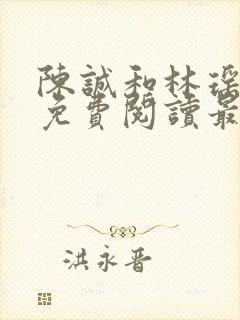 陳誠和林瑶
免費閱讀最
洪永晋